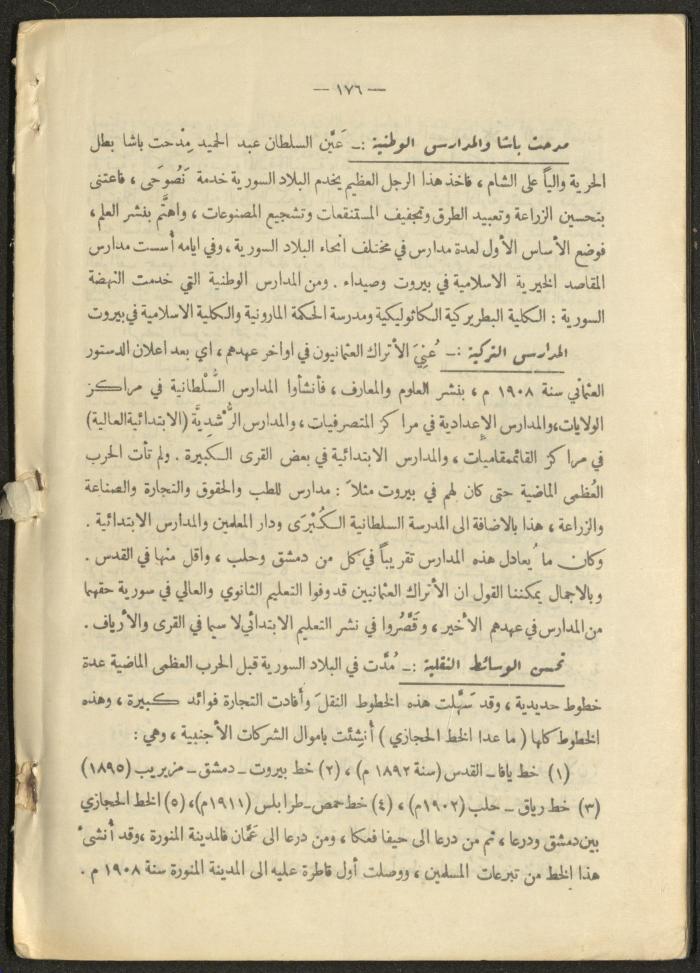 — ١٧٦ —
مدحت باشا والمدارس الوطنية :ـ عَيَّن السلطان عبد الحميد مِدْحت باشا بطل
الحرية والياً على الشام ، فاخذ هذا الرجل العظيم يخدم البلاد السورية خدمة نَصُوحَى ، فاعتنى
بتحسين الزراعة وتعبيد الطرق وتجفيف المستنقعات وتشجيع المصنوعات ، واهتَّم بنشر العلم ،
فوضع الأساس الأول لعدة مدارس في مختلف انحاء البلاد السورية ، وفي ايامه أسست مدارس
المقاصد الخيرية الاسلامية في بيروت وصيداء . ومن المدارس الوطنية التي خدمت النهضة
السورية : الكلية البطريركية الكاثوليكية ومدرسة الحكمة المارونية والكلية الاسلامية في بيروت
المدارس التركية :ـ عُنِيَ الأتراك العثمانيون في اواخر عهدهم ، اي بعد اعلان الدستور
العثماني سنة ١٩٠٨ م ، بنشر العلوم والمعارف ، فأنشأوا المدارس السُّلْطانية في مراكز
الولايات، والمدارس الإعدادية في مراكز المتصرفيات ، والمدارس الرُّشدِيَّة (الابتدائية العالية)
في مراكز القائممقاميات ، والمدارس الابتدائية في بعض القرى الكبيرة . ولم تأت الحرب
العُظمى الماضية حتى كان لهم في بيروت مثلاً : مدارس للطب والحقوق والتجارة والصناعة
والزراعة ، هذا بالاضافة الى المدرسة السلطانية الكُبْرَى ودار المعلمين والمدارس الابتدائية .
وكان ما يُعادل هذه المدارس تقريباً في كل من دمشق وحلب ، واقل منها في القدس .
وبالاجمال يمكننا القول ان الأتراك العثمانيين قد وفوا التعليم الثانوي والعالي في سورية حقهما
من المدارس في عهدهم الأخير ، وقَصَّرُوا في نشر التعليم الابتدائي لا سيما في القرى والأرياف .
تحسن الوسائط النقلية :ـ مُدَّت في البلاد السورية قبل الحرب العظمى الماضية عدة
خطوط حديدية ، وقد سَهَّلت هذه الخطوط النقلَ وأفادت التجارة فوائد كبيرة ، وهذه
الخطوط كلها ( ما عدا الخط الحجازي ) أُنشِئت باموال الشركات الأجنبية ، وهي :
(١) خط يافا ـ القدس (سنة ١٨٩٢ م) ، (٢) خط بيروت ـ دمشق ـ مزيريب (١٨٩٥)
(٣) خط رياق ـ حلب (١٩٠٢م) ، (٤) خط حمص ـ طرابلس (١٩١١م)، (٥) الخط الحجازي
بين دمشق ودرعا ، ثم من درعا الى حيفا فعكا ، ومن درعا الى عَمَّان فالمدينة المنورة ، وقد أُنشىء
هذا الخط من تبرعات المسلمين ، ووصلت أول قاطرة عليه الى المدينة المنورة سنة ١٩٠٨ م .